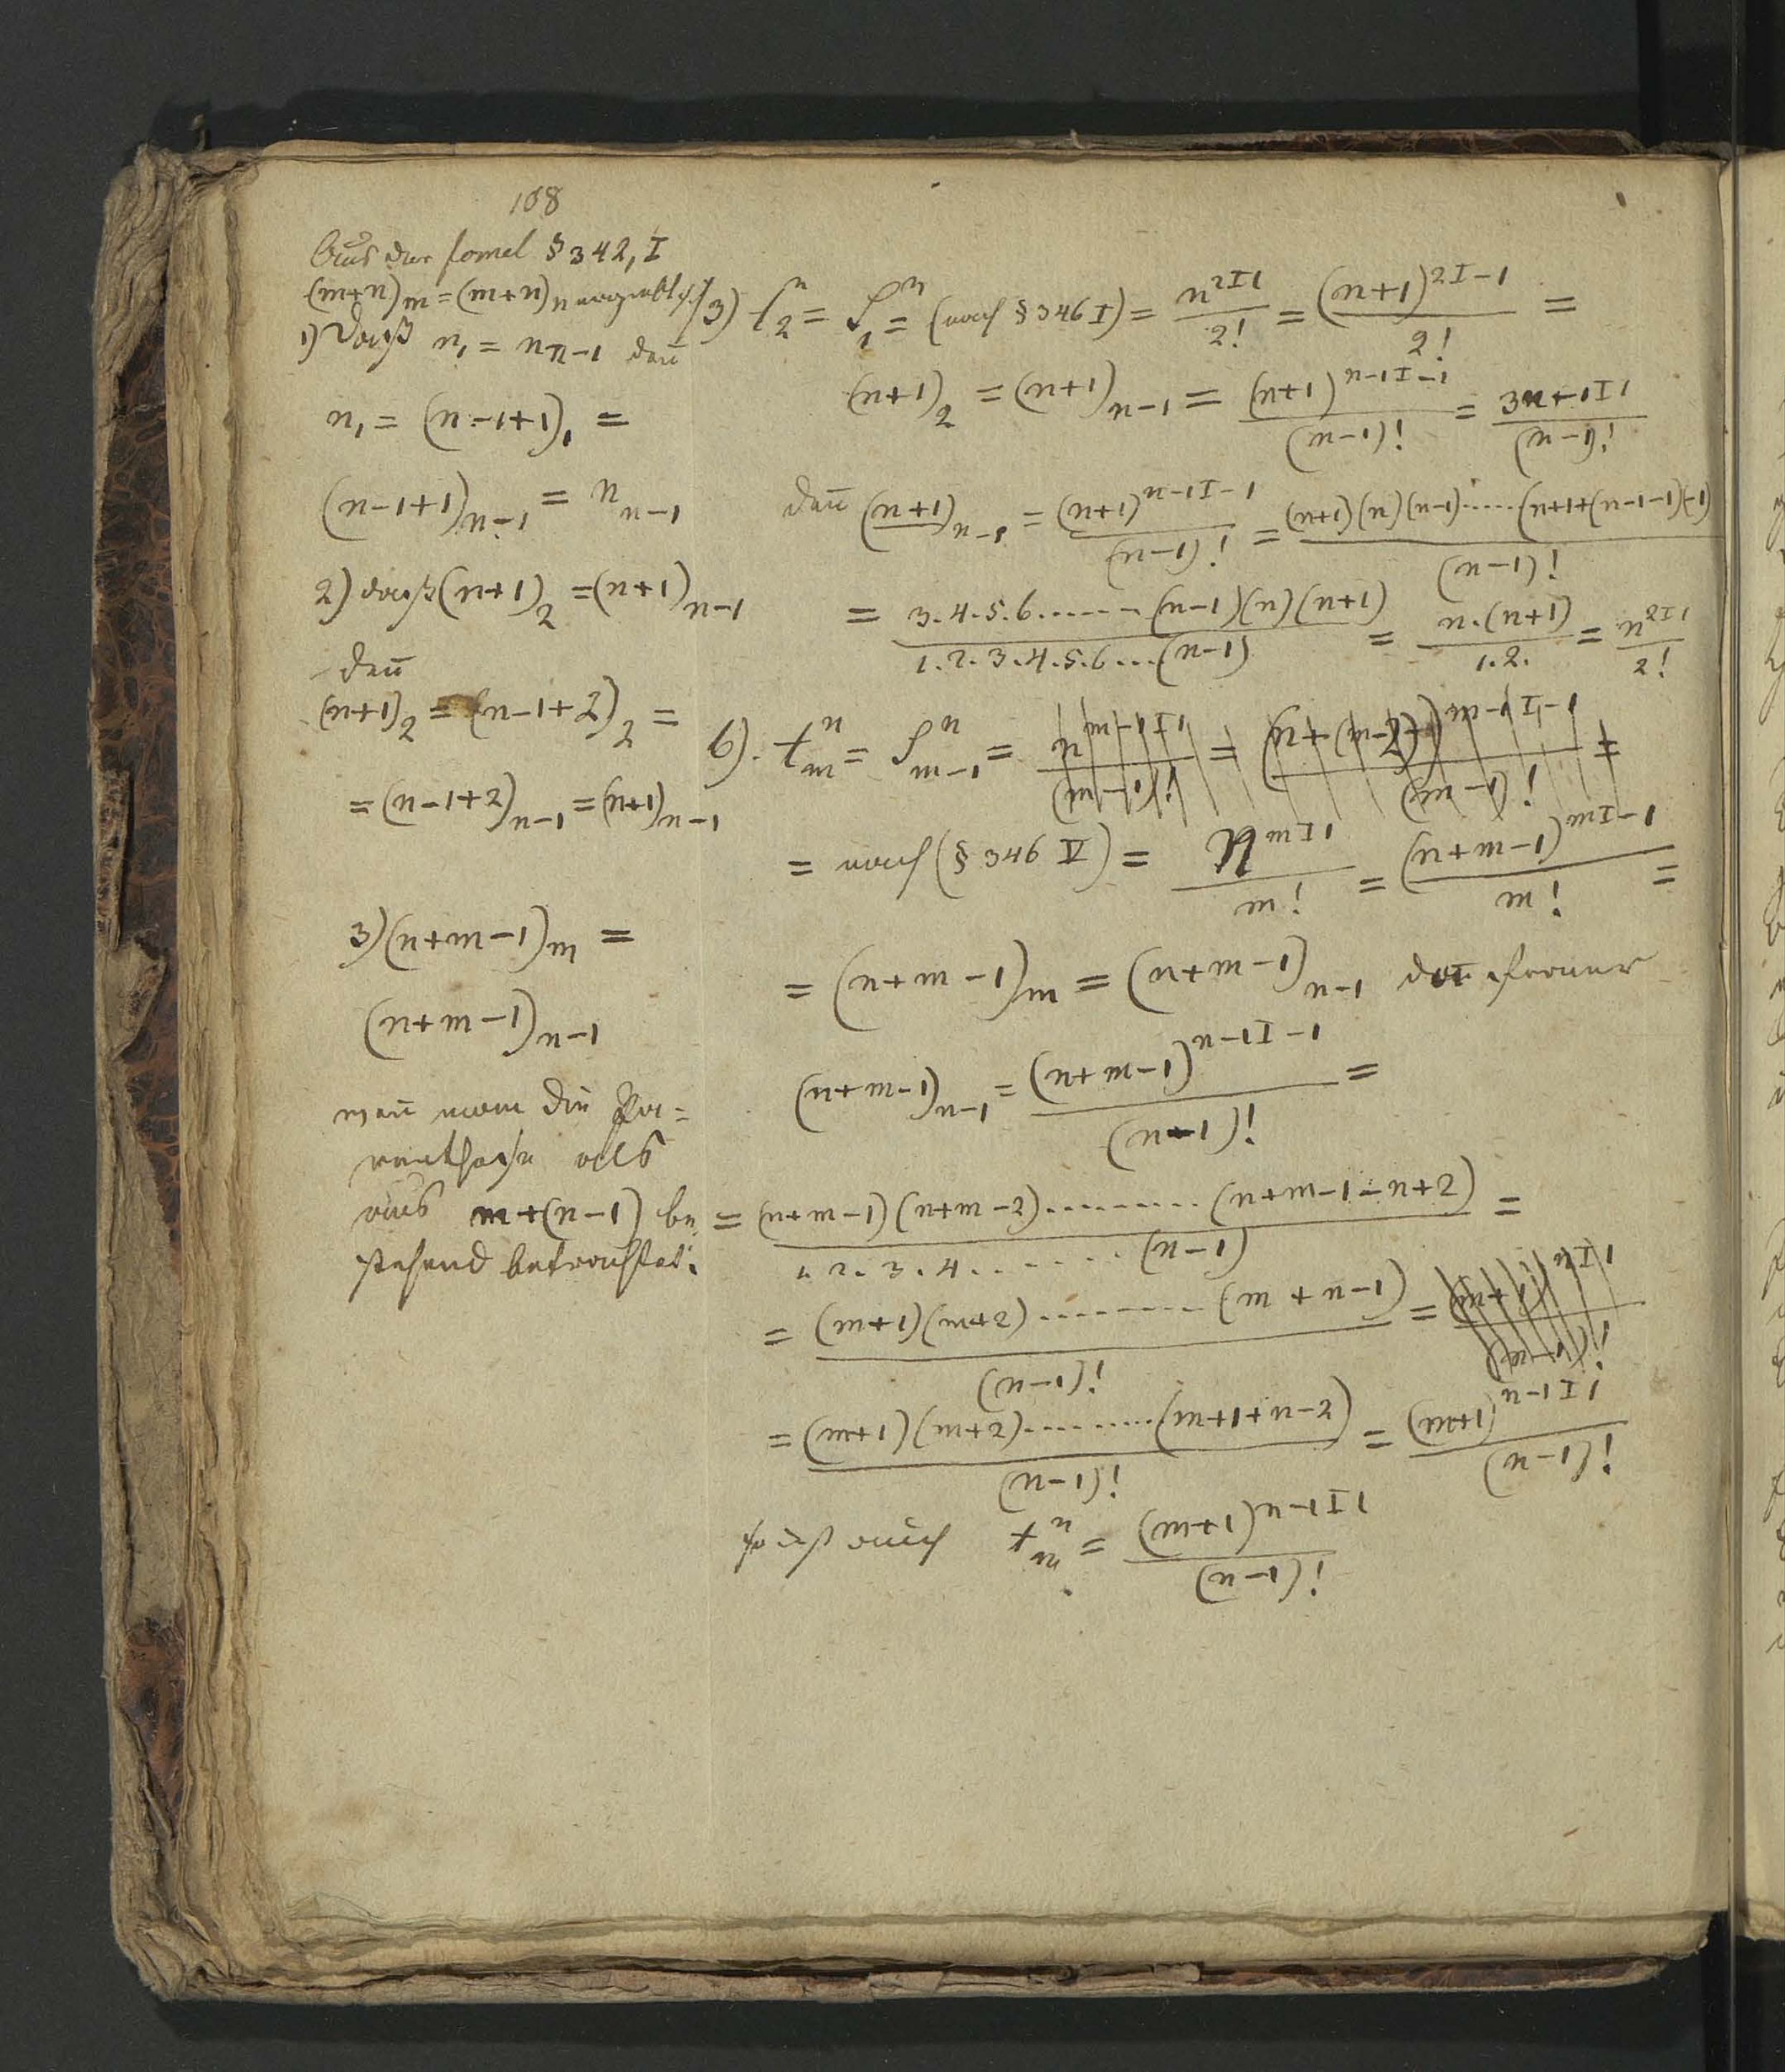 108
Aus der Formel § 342, I
(m+n)m = (m+n)n ergiebt sich
1) daß n1 = nn-1 deñ
n1 = (n-1+1)1 =
(n-1+1)n-1 = nn-1
2) daß (n+1)2 = (n+1)n-1
deñ
(n+1)2 = (n-1+2)2 =
= (n-1+2)n-1 = (n+1)n-1
3) (n+m-1)m =
(n+m-1)n-1
weñ man die Pa=
renthese als
aus m+(n-1) be
stehend betrachtet.
3) t2^n = S1^n = (nach § 346 I) = n^2I1 / 2! = (n+1)^2I-1 / 2! =
(n+1)2 = (n+1)n-1 = (n+1)^n-1I-1 / (n-1)! = 3^n-1I1 / (n-1)!
deñ (n+1)n-1 = (n+1)^n-1I-1 / (n-1)! = (n+1)(n)(n-1).....(n+1+(n-1-1)(-1) / (n-1)!
= 3.4.5.6......(n-1)(n)(n+1) / 1.2.3.4.5.6...(n-1) = n.(n+1) / 1.2. = n^2I1 / 2!
6). tm^n = Sm-1^n =
= nach (§ 346 V) = n^mI1 / m! = (n+m-1)^mI-1 / m! =
= (n+m-1)m = (n+m-1)n-1 deñ ferner
(n+m-1)n-1 = (n+m-1)^n-1I-1 / (n-1)! =
= (n+m-1)(n+m-2).........(n+m-1-n+2) / 1.2.3.4.......(n-1) =
= (m+1)(m+2).........(m+n-1) / (n-1)! =
= (m+1)(m+2).........(m+1+n-2) / (n-1)! = (m+1)^n-1I1 / (n-1)!
so ist auch tm^n = (m+1)^n-1I1 / (n-1)!